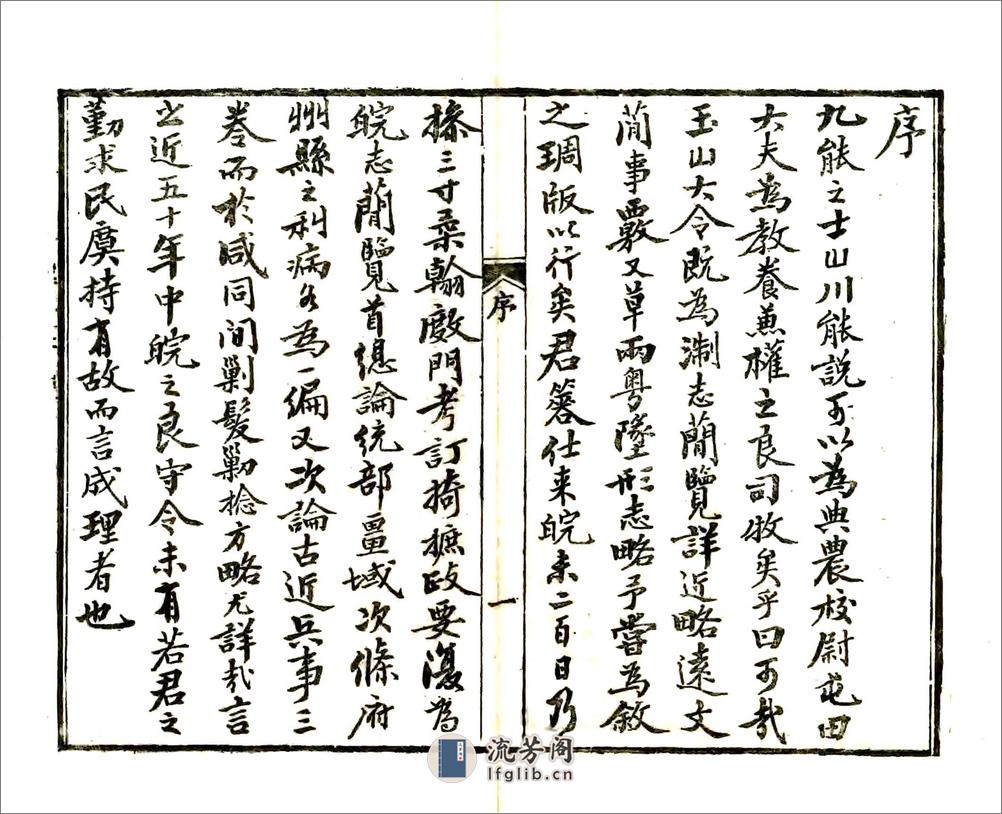 序
九能之士山川能說可以為典農校尉屯田
大夫為教養兼權之良司牧矣乎曰可哉
玉山大令既為淛志蕳覽詳近略遠文
蕳事覈又草兩粤墬形志略予嘗為敘
之琱版以行矣君簭仕来皖未二百日乃
序
一
操三寸柔翰廠門考訂掎摭政要復為
皖志蕳覽首總論統部畺域次條府
州縣之利病各為一編又次論古近兵事三
卷而於咸同間剿髮剿捻方略尤詳哉言
之近五十年中皖之良守令未有若君之
勤求民瘼持有故而言成理者也
流芳阁
lfglib.cn